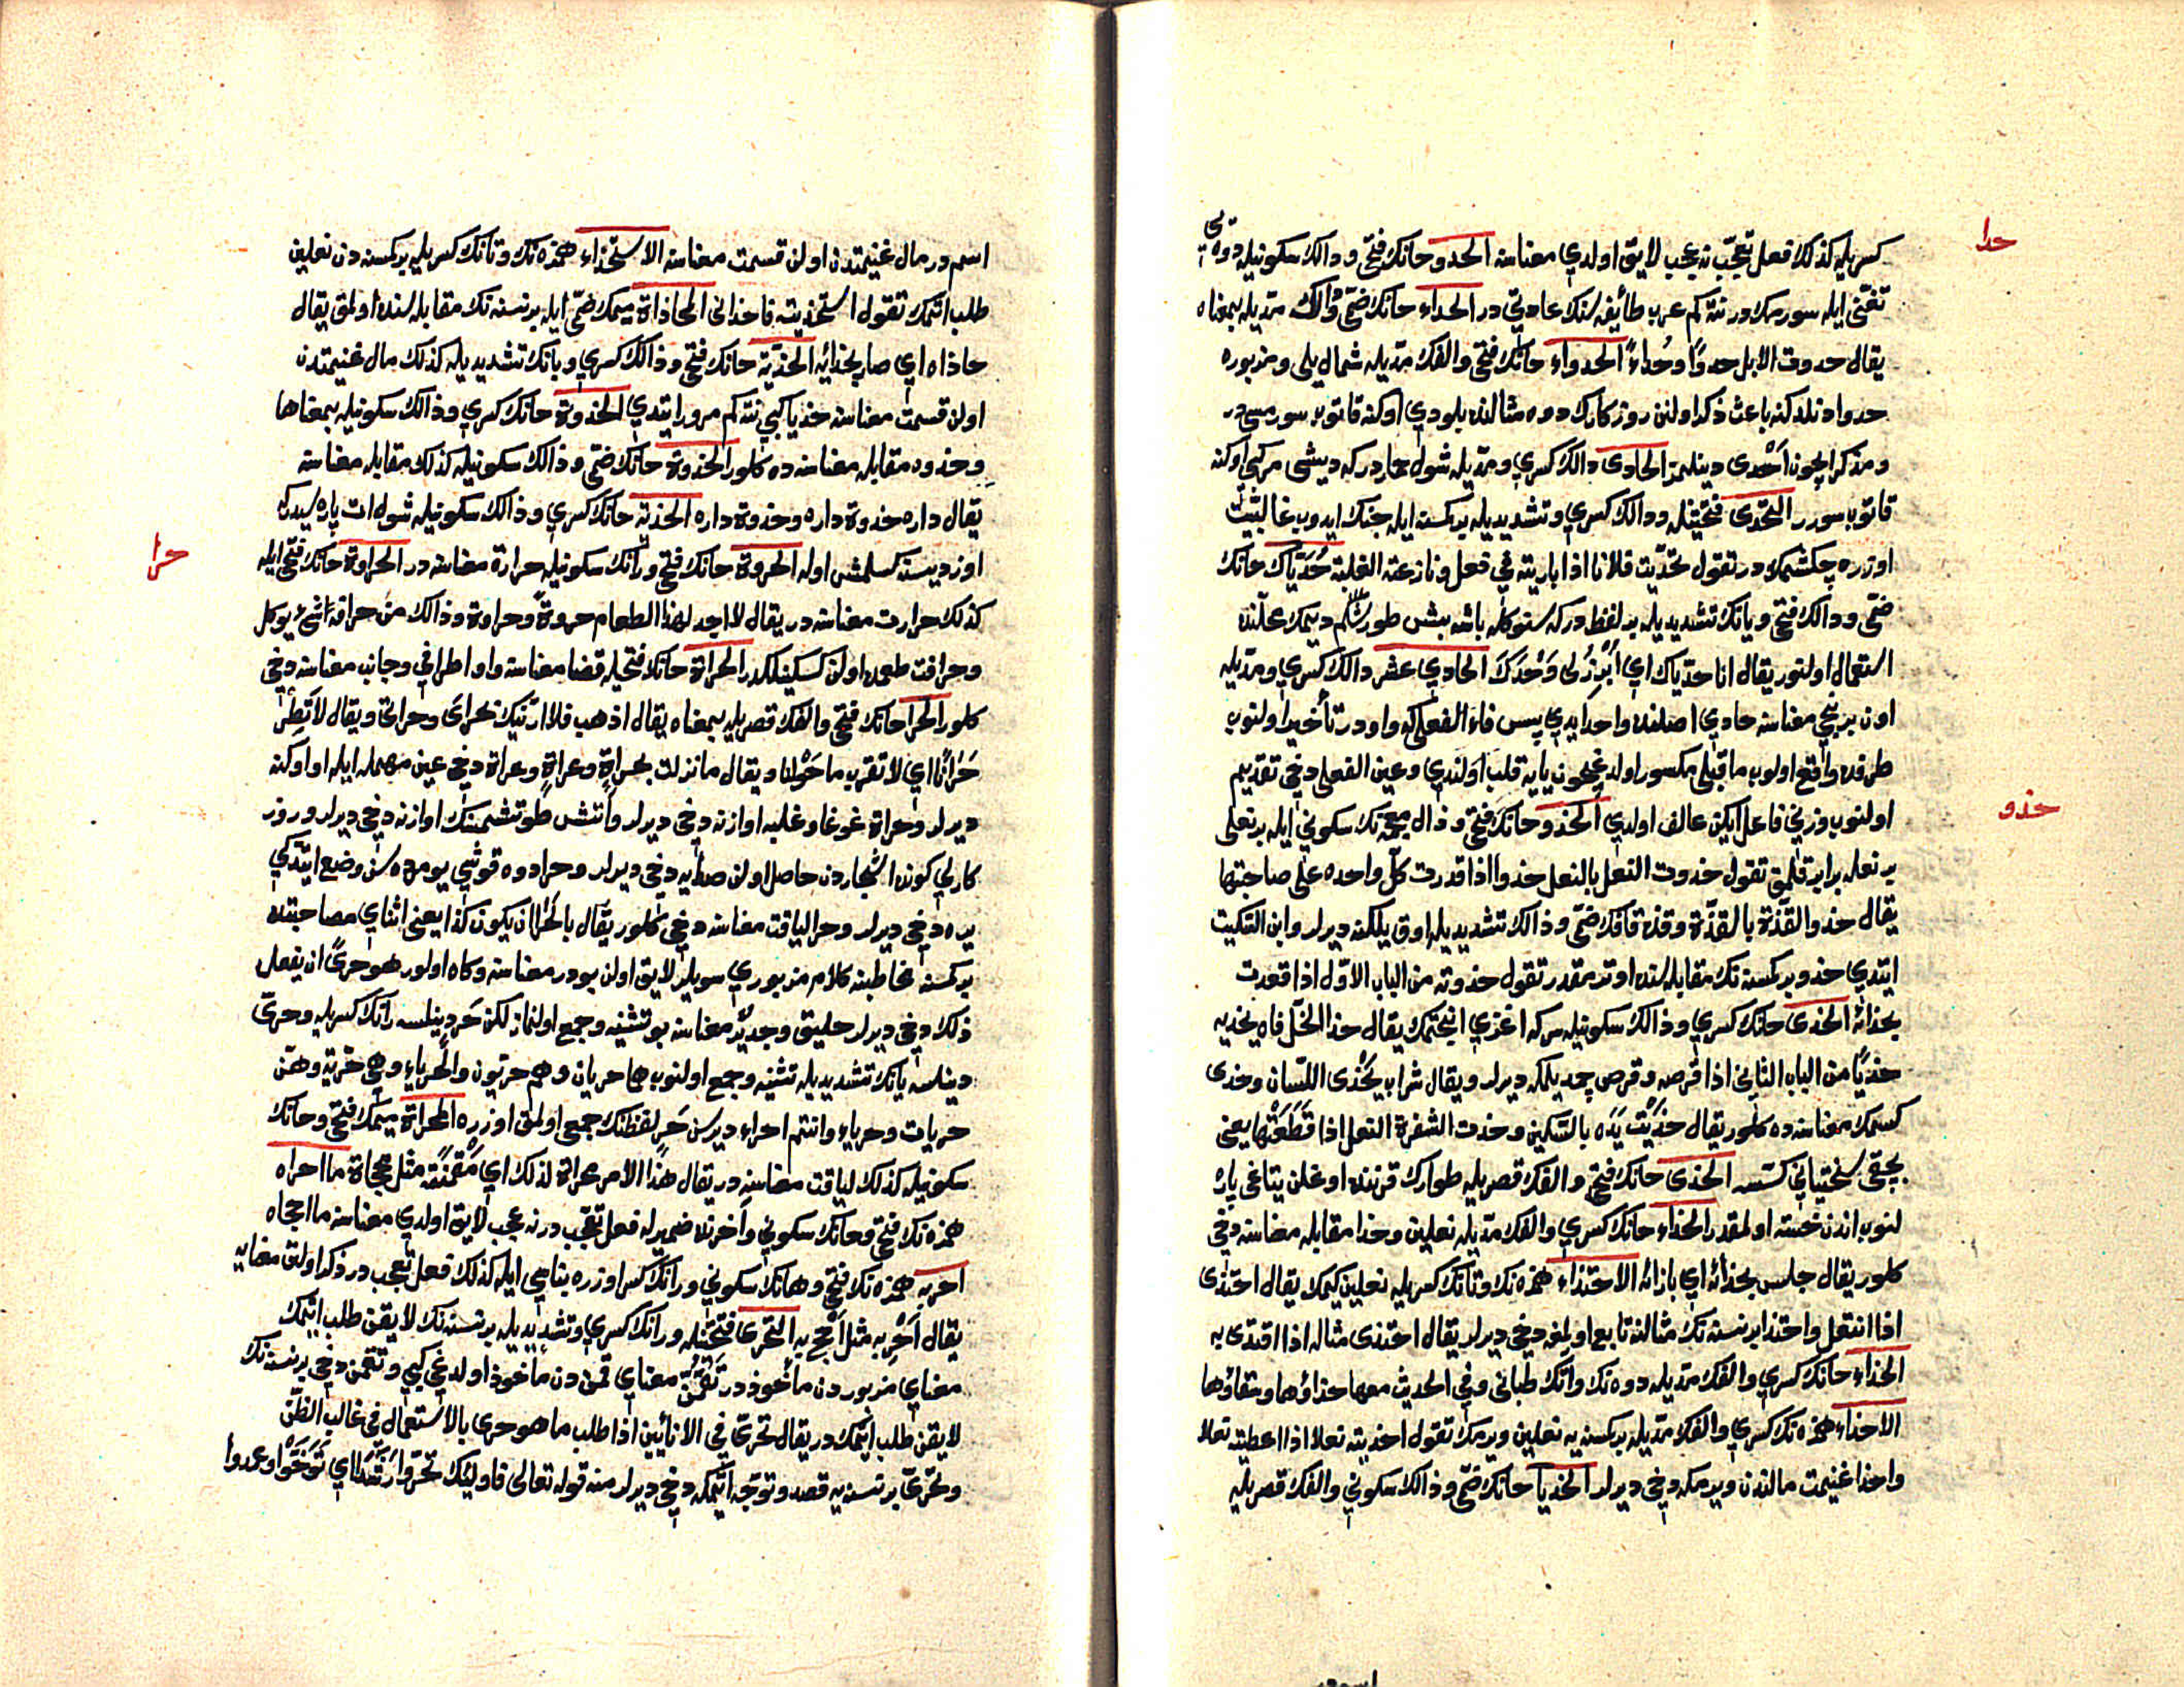 حدا
كسريله كذلك فعل تعجّب نه عجب لايق اولدي معناسنه الحدو حانك فتحى و دالك سكونيله دوه يى
تغنّى ايله سورمكدر نته كم عرب طائفه سنك عادتى در الحداء حانك ضمّى و دالك مدّيله بمعناه
يقال حدوت الابل حدوًا وحُداءً الحدواء حانك فتحى والفك مدّيله شمال يلى و مزبوره
حدوا دنلدكنه باعث ذكر اولنن روزكارك دوه مثالنده بلودي اوكنه قاتوب سورمسى در
ومذكر ايچون اَحْدى دينلمز الحادى دالك كسري ومدّيله شول حماردركه ديشى مركبى اوكنه
قاتوب سورر التحدّى فتحتينله و دالك كسري وتشديديله بر كسنه ايله جنك ايدوب غالبيّت
اوزره چكشمكدر تقول تحدّيت فلانا اذا باريته في فعل ونازعته الغلبة حُدَيّاك حانك
ضمّى و دالك فتحى ويانك تشديديله بر لفظ در كه سنوكله باشه بش طورشلم ديمك محلّنده
استعمال اولنور يقال انا حديّاك اي اُبْرُزْلى وَحْدَكَ الحادي عشر دالك كسري ومدّيله
اون برنجى معناسنه حادي اصلنده واحد ايدي پس فاء الفعلى كه واودر تأخير اولنوب
طرفده واقع اولوب ما قبلى مكسور اولدغيچون يايه قلب اولندي وعين الفعلى دخى تقديم
حذو
اولنوب وزنى فاعل ايكن عالف اولدي الحذو حانك فتحى و ذال معجمه نك سكونى ايله بر نعلى
بر نعله برابر قلمق تقول حذوت النعل بالنعل حذوا اذا قدرت كلّ واحده على صاحبتها
يقال حذو القذّة بالقذّة وقذه قافك ضمّى و ذالك تشديديله اوق يلكنه ديرلر وابن السّكيت
ايتدي حذو بر كسنه نك مقابله سنده اوترمقدر تقول حذوته من الباب الاوّل اذا قعدت
بحذائه الحذى حانك كسري و ذالك سكونيله سركه اغزي اينجتمك يقال حذا الخلّ فاه يحذيه
حذيًا من الباب الثاني اذا قرصه وقرص چمديلمكه ديرلر ويقال شراب يحْذى اللّسان وحذى
كسمك معناسنه ده كلور يقال حذَيْتُ يَدَه بالسّكين وحذت الشفرة النعل اذا قَطَعَتْها يعنى
بچقى سختيانى كسسه الحذى حانك فتحى والفك قصريله طوارك قرننده اوغلن يتاغى پاره
لنوب اندن خسته اولمقدر الحذاء حانك كسري والفك مدّيله نعلين وحذا مقابله معناسنه دخى
كلور يقال جلس بحذائه اي بازائه الاحتذاء همزه نك وتانك كسريله نعلين كيمك يقال احتذى
اذا انتعل واحتذا بر نسنه نك مثالنه تابع اولمغه دخى ديرلر يقال احتذى مثاله اذا اقتدى به
الحذاء حانك كسري والفك مدّيله دوه نك واتك طبانى وفي الحديث معها حذاؤها وسقاؤها
الاحذاء همزه نك كسري والفك مدّيله بر كسنه يه نعلين ويرمك تقول احذيته نعلا اذا اعطيته نعلا
واحذا غنيمت مالندن ويرمكه دخى ديرلر الحذيا حانك ضمّى و ذالك سكونى والفك قصريله
اسم در مال غنيمتدن اولن قسمت معناسنه الاستحذاء همزه نك وتانك كسريله بر كسنه دن نعلين
طلب اتمك تقول استحذيته فاحذانى المحاذاة ميمك ضمّى ايله بر نسنه نك مقابله سنده اولمق يقال
حاذاه اي صار بحذائه الحذيّة حانك فتحى و ذالك كسري ويانك تشديديله كذلك مال غنيمتدن
اولن قسمت معناسنه حذيا كبى نته كم مرور ايتدي الحذوة حانك كسري و ذالك سكونيله بمعناها
وحذوه مقابله معناسنه ده كلور الحذوة حانك ضمّى و ذالك سكونيله كذلك مقابله معناسنه
يقال داره حذوة داره وحذوة داره الحذية حانك كسري و ذالك سكونيله شول ات پاره سيدركه
حرا
اوزديسنه كسلمش اوله الحروة حانك فتحى ورانك سكونيله حرارة معناسنه در الحراوة حانك فتحى ايله
كذلك حرارت معناسنه در يقال لاجد لهذا الطعام حروةً وحراوة وذالك من حرافة شئ يوكل
وحرافت طعمده اولن كسكينلكدر الحراة حانك فتحيله قضا معناسنه واو اطرافى وجانب معناسنه دخى
كلور الحرا حانك فتحى والفك قصريله بمعناه يقال اذهب فلا ارينّك بحراى وحراتى ويقال لا تَطُرْ
حَرَانَا اي لا تقرب ما حَوْلنا ويقال ما نزلت بحراة وعراة وعراة دخى عين مهمله ايله او اوكنه
ديرلر وحراة غوغا وغلبه اوازنه دخى ديرلر واتش طوتشمسنك اوازنه دخى ديرلر و روز
كارلى كونده اشجاردن حاصل اولن صدايه دخى ديرلر وحرا دوه قوشى يومرده سن وضع ايتدكى
يره دخى ديرلر وحرا لياقت معناسنه دخى كلور يقال بالحَرا ان يكون كذا يعنى اثناي مصاحبتده
بر كسنه مخاطبنه كلام مزبوري سويلر لايق اولن بودر معناسنه وكاه اولور هو حرىً ان يفعل
ذلك دخى ديرلر خليق وجدير معناسنه بو تثنيه وجمع اولنماز لكن حَرٍ دينلسه رانك كسريله وحرىّ
دينلسه يانك تشديديله تثنيه وجمع اولنوب هما حريان وهم حريّون واحرياء وهى حريّة وهنّ
حريات وحرياء وانتم احراء ديرسن حَر لفظنك جمعى اولمق اوزره المحراة ميمك فتحى وحانك
سكونيله كذلك لياقت معناسنه در يقال هذا الامر محراة لذلك اي مَقْمَنَةٌ مثل محجاة ما احراه
همزه نك فتحى وحانك سكونى وآخرنده ضميرله فعل تعجّب در نه عجب لايق اولدي معناسنه ما احجاه
احربه همزه نك فتحى وحانك سكونى ورانك كسر اوزره بناسى ايله كذلك فعل تعجّب در ذكر اولنن معنايه
يقال اَحْرِ به مثل اَحْجِ به التحرّى فتحتينله ورانك كسري وتشديديله بر نسنه نك لايقن طلب اتمك
معناي مزبوردن مأخوذدر تَقَمُّن معناي قمن دن مأخوذ اولدغى كبى وتقمن دخى بر نسنه نك
لايقن طلب ايتمكدر يقال تحرّى في الانائين اذا طلب ما هو حرى بالاستعمال في غالب الظنّ
وتحرّى بر نسنه يه قصد وتوجّه اتمكه دخى ديرلر منه قوله تعالى فاولئك تحرّوا رَشَدًا اي تَوَخَّوْا وعمدوا